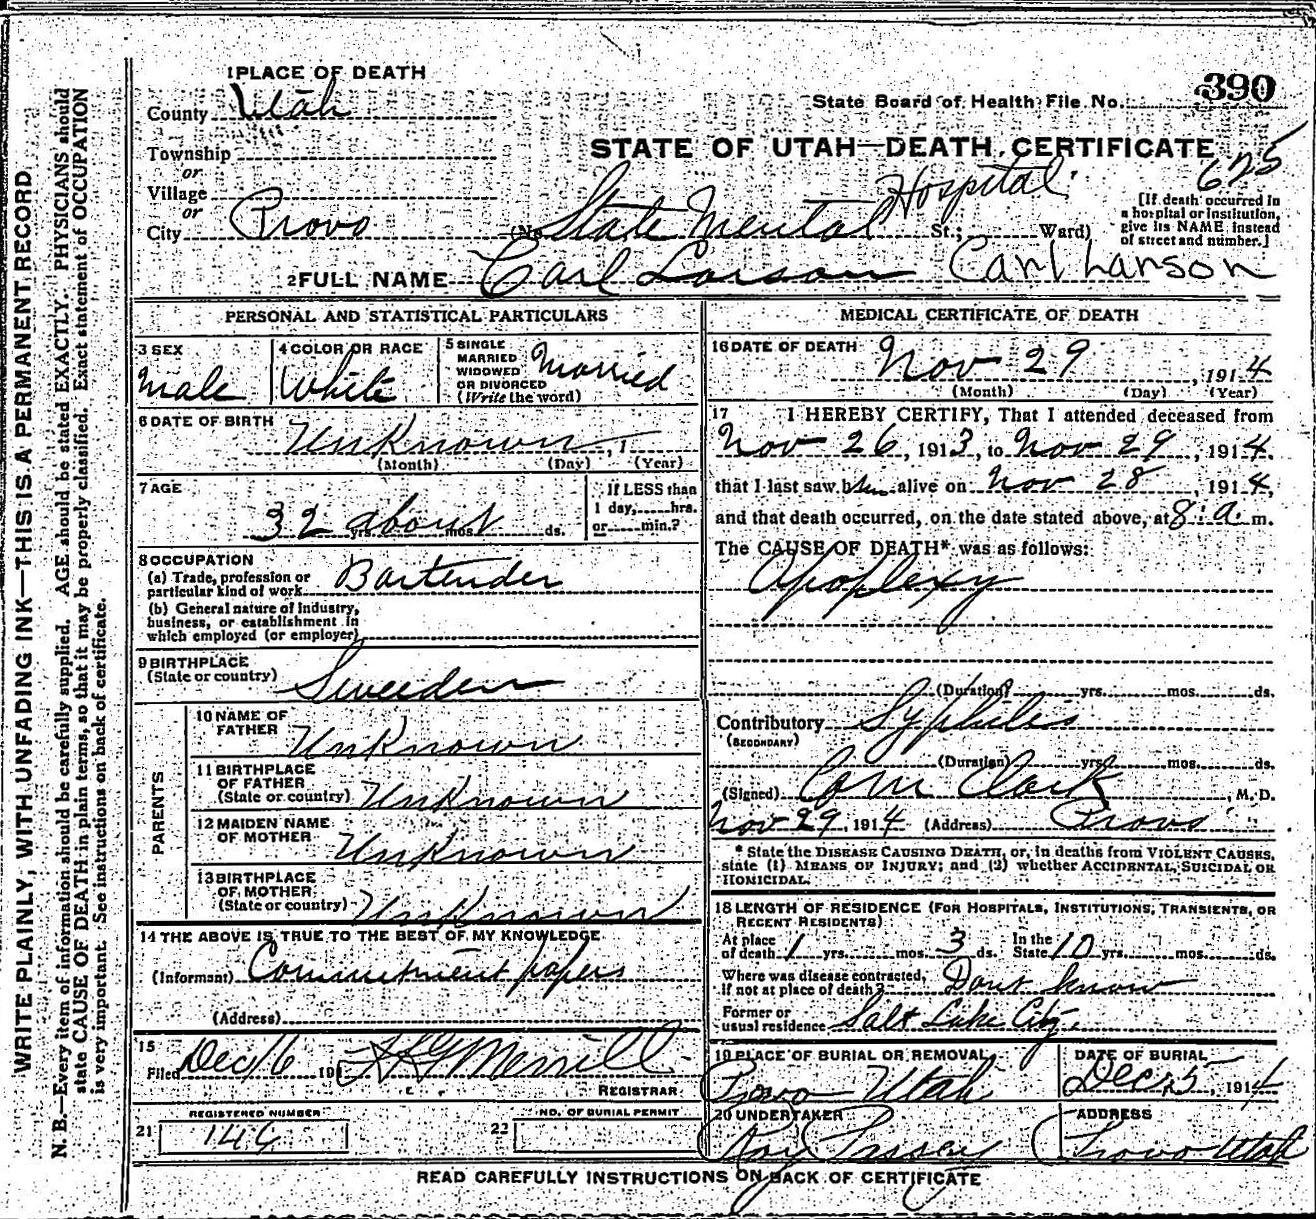 1 PLACE OF DEATH
County Utah
State Board of Health File No. 390
Township
or
Village
or
City Provo
STATE OF UTAH—DEATH CERTIFICATE
625
(No State Mental Hospital St.; Ward)
[If death occurred in
a hospital or institution,
give its NAME instead
of street and number.]
2 FULL NAME Carl Larson Carl Larson
PERSONAL AND STATISTICAL PARTICULARS
3 SEX
Male
4 COLOR OR RACE
White
5 SINGLE
MARRIED
WIDOWED
OR DIVORCED
(Write the word)
Married
6 DATE OF BIRTH
Unknown, 1
(Month) (Day) (Year)
7 AGE
32 about yrs. mos. ds.
If LESS than
1 day, hrs.
or min.?
8 OCCUPATION
(a) Trade, profession or
particular kind of work Bartender
(b) General nature of industry,
business, or establishment in
which employed (or employer)
9 BIRTHPLACE
(State or country) Sweeden
PARENTS
10 NAME OF
FATHER Unknown
11 BIRTHPLACE
OF FATHER
(State or country) Unknown
12 MAIDEN NAME
OF MOTHER Unknown
13 BIRTHPLACE
OF MOTHER
(State or country) Unknown
14 THE ABOVE IS TRUE TO THE BEST OF MY KNOWLEDGE
(Informant) Commitment papers
(Address)
15
Filed Dec 16 191 Merrill
REGISTRAR
REGISTERED NUMBER
21 146
NO. OF BURIAL PERMIT
22
MEDICAL CERTIFICATE OF DEATH
16 DATE OF DEATH Nov 29, 1914
(Month) (Day) (Year)
17 I HEREBY CERTIFY, That I attended deceased from
Nov 26, 1913, to Nov 29, 1914,
that I last saw him alive on Nov 28, 1914,
and that death occurred, on the date stated above, at 8:a m.
The CAUSE OF DEATH* was as follows:
Apoplexy
(Duration) yrs. mos. ds.
Contributory Syphilis
(SECONDARY)
(Duration) yrs. mos. ds.
(Signed) Clark, M. D.
Nov 29, 1914 (Address) Provo
* State the DISEASE CAUSING DEATH, or, in deaths from VIOLENT CAUSES,
state (1) MEANS OF INJURY; and (2) whether ACCIDENTAL, SUICIDAL OR
HOMICIDAL.
18 LENGTH OF RESIDENCE (FOR HOSPITALS, INSTITUTIONS, TRANSIENTS, OR
RECENT RESIDENTS)
At place
of death 1 yrs. mos. 3 ds. In the
State 10 yrs. mos. ds.
Where was disease contracted,
if not at place of death? Dont know
Former or
usual residence Salt Lake City.
19 PLACE OF BURIAL OR REMOVAL
Provo Utah
DATE OF BURIAL
Dec 5, 1914
20 UNDERTAKER
Roy
ADDRESS
Provo Utah
READ CAREFULLY INSTRUCTIONS ON BACK OF CERTIFICATE
WRITE PLAINLY, WITH UNFADING INK—THIS IS A PERMANENT RECORD
N. B.—Every item of information should be carefully supplied. AGE should be stated EXACTLY. PHYSICIANS should
state CAUSE OF DEATH in plain terms, so that it may be properly classified. Exact statement of OCCUPATION
is very important. See instructions on back of certificate.